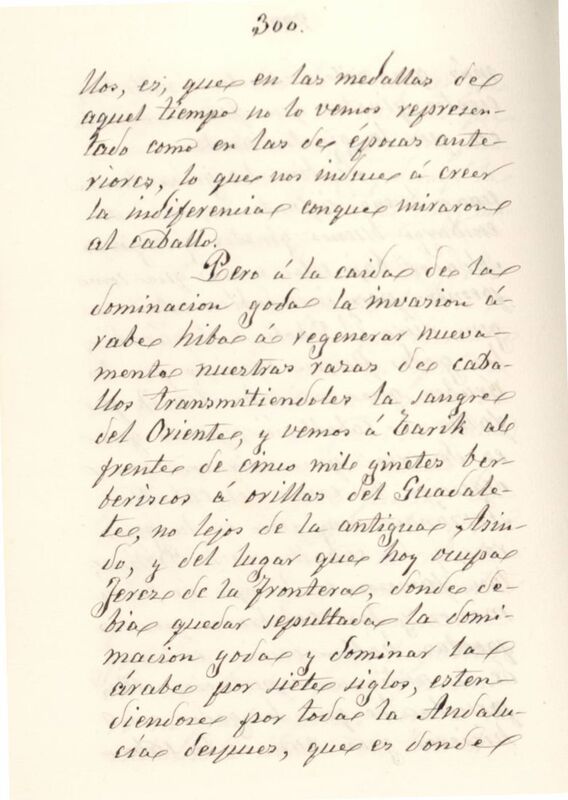 300.
llos, es, que en las medallas de
aquel tiempo no lo vemos represen-
tado como en las de épocas ante-
riores, lo que nos induce á creer
la indiferencia conque miraron
al caballo.
Pero á la caida de la
dominacion goda la invasion á-
rabe hiba á regenerar nueva-
mente nuestras razas de caba-
llos transmitiendoles la sangre
del Oriente, y vemos á Tarik al
frente de cinco mil ginetes ber-
beriscos á orillas del Guadale-
te, no lejos de la antigua Asin-
do, y del lugar que hoy ocupa
Jerez de la Frontera, donde de-
bia quedar sepultada la domi-
nacion goda y dominar la
árabe por siete siglos, esten-
diendose por toda la Andalu-
cía despues, que es donde